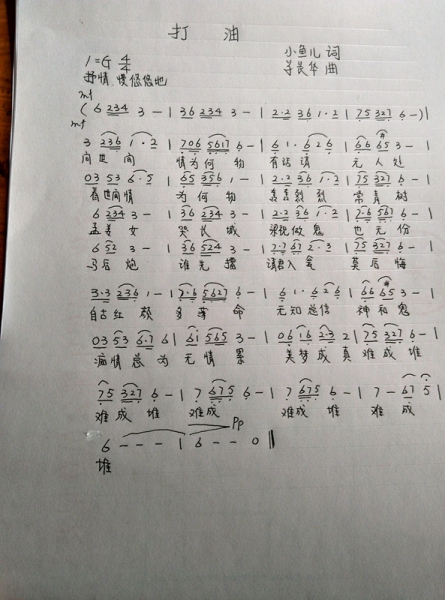 打 油
小鱼儿 词
1=G 4/4
曲
抒情 慢悠悠地
mf
( 6 234 3 - | 36 234 3 - | 2·2 36 1·2 | 75 327 6 - )|
mf
3 236 1·2 | 706 5617 6 - | 6 1· 6 2 6 | 66 #65 3 - |
问世间 情为何物 有话请 无人处
03 53 6·5 | 65 356 1 - | 2·2 36 1·2 | 75 327 6 - |
看世间情 为何物 轰轰烈烈 常青树
6 234 3 - | 36 234 3 - | 2·2 36 1·2 | 7·6 567 6 - |
孟姜女 哭长城 梁祝做鬼 也无份
6 52 3 - | 36 524 3 - | 7·7 67 2·3 | 75 327 6 - |
马后炮 谁先擂 请君入瓮 莫后悔
3·3 236 1 - | 7·6 5627 6 - | 6 1· 6 2 6 | 66 #65 3 - |
自古红颜 多薄命 无知迷信 神和鬼
03 53 6·7 6 | 61 565 3 - | 06 16 2·3 2 | 75 327 6 - |
痴情总为无情累 美梦成真难成堆
75 327 6 - | 7 675 6 - | 7 675 6 - | 7 - 67 5 |
难成堆 难成 难成堆 难成
pp
6 - - - | 6 - - 0 ‖
堆